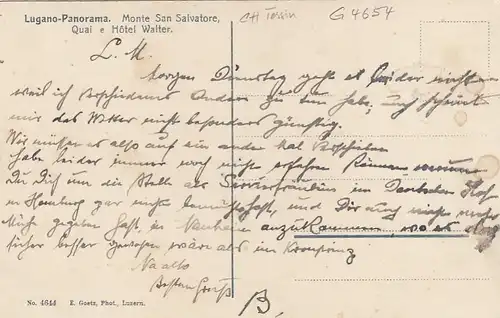 Lugano-Panorama. Monte San Salvatore,
Quai e Hôtel Walter.
CH Tessin
G 4654
L. M.
Morgen Dienstag geht es leider nicht
weil ich verschiedenes Anderes zu tun habe, auch scheint
mir das Wetter nicht besonders günstig.
Wir müssen es also auf ein ander Mal verschieben
habe leider immer noch nicht erfahren können warum
Du Dich um die Stelle als Servierfräulein im Deutschen Hof
in Homburg gar nicht bemüht hast, und Dir auch nicht mehr
Mühe gegeben hast, in Nauheim anzukommen, wo es doch
sicher besser gewesen wäre als im Kronprinz
Na also
Besten Gruß
B.
No. 4644 E. Goetz, Phot., Luzern.